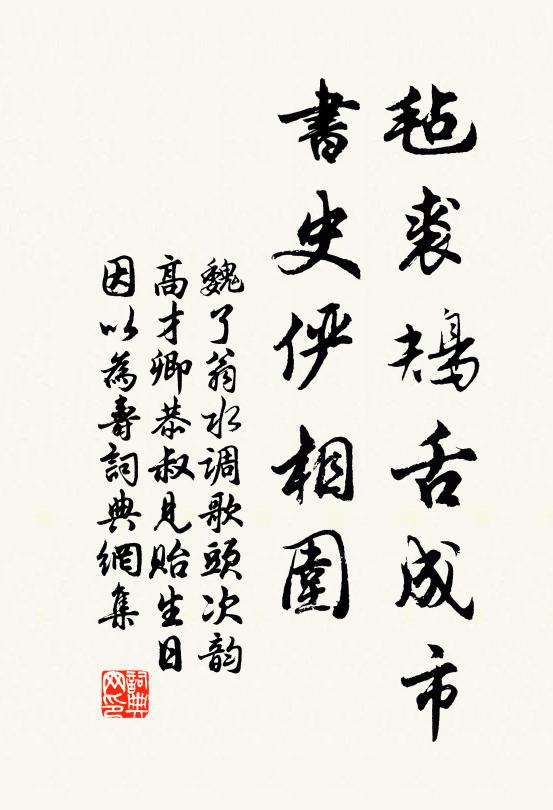 毡裘鴂舌成市
書史俨相圍
魏了翁水调歌頭次韵
高才卿恭叔見貽生日
因以為壽詞典網集
詞典网印